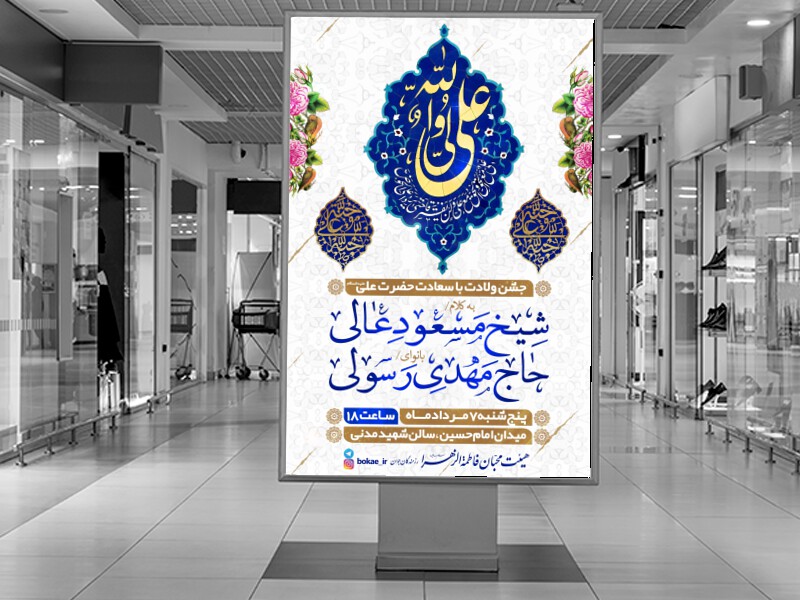 علی ولی الله
جشن ولادت با سعادت حضرت علی
به کلام/
شیخ مسعود عالی
بانوای/
حاج مهدی رسولی
پنج شنبه ۷ مرداد ماه ساعت ۱۸
میدان امام حسین ، سالن شهید مدنی
هیئت محبان فاطمة الزهرا
bokae_ir